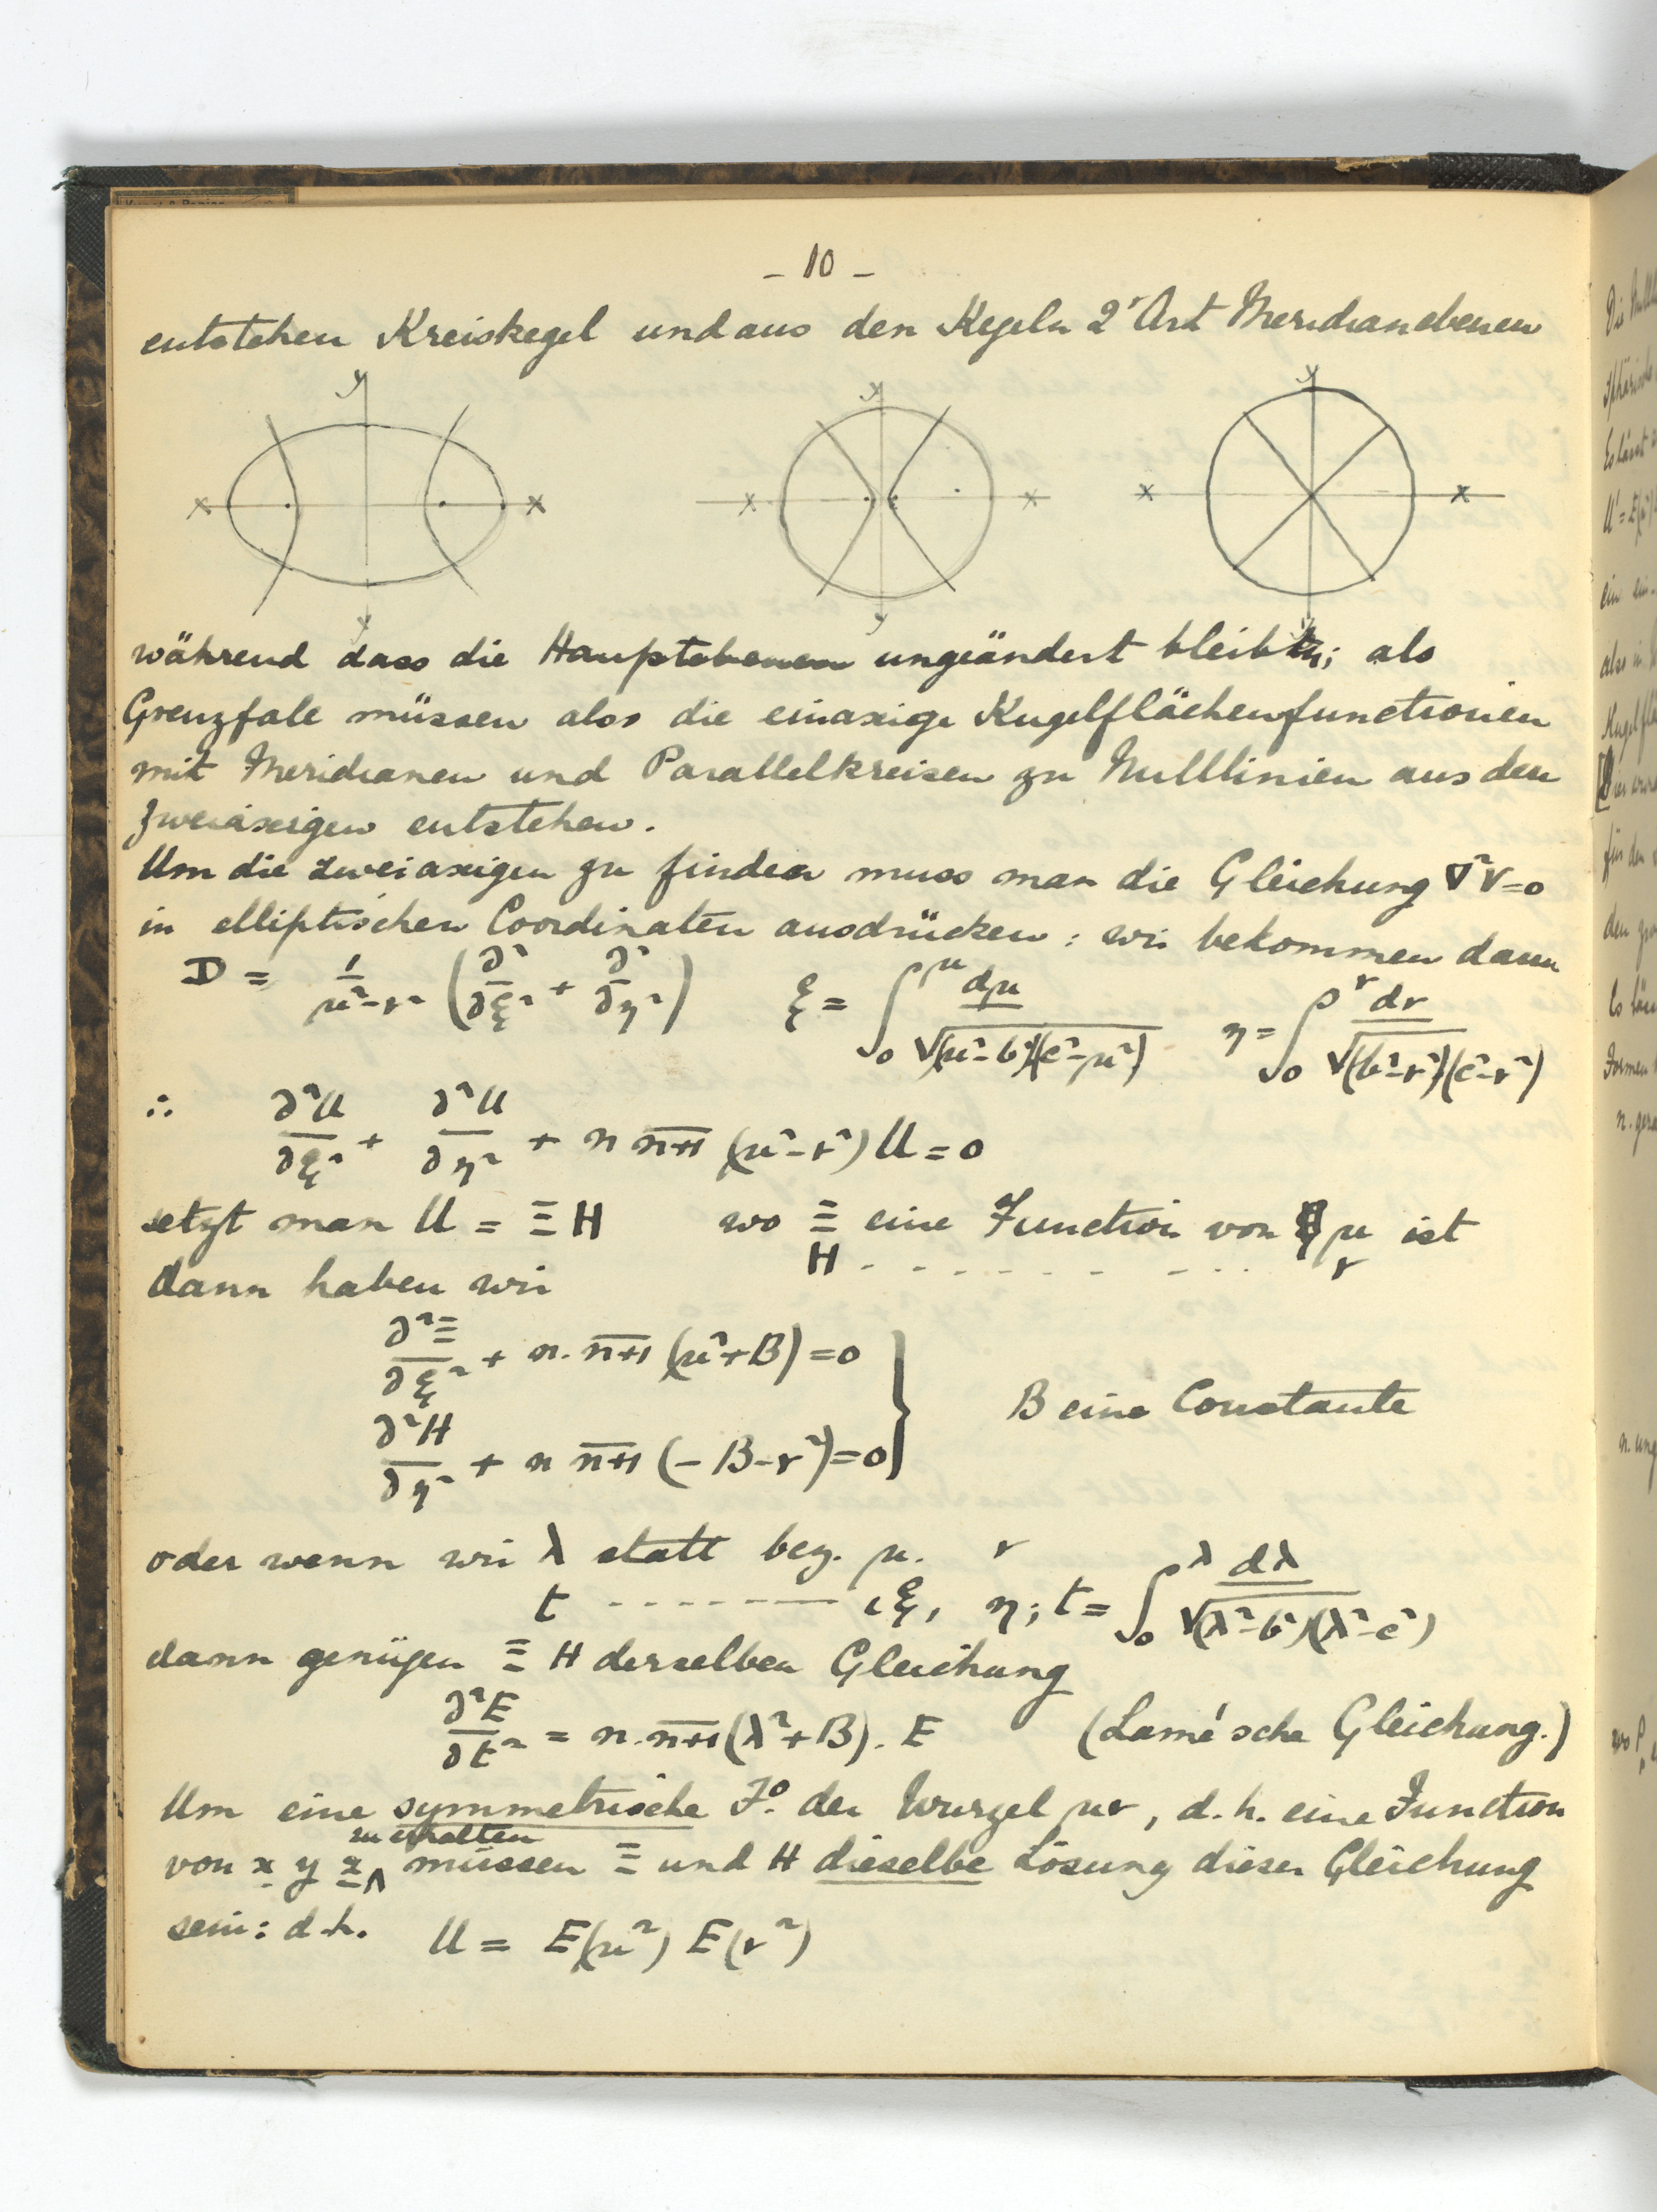 - 10 -
entstehen Kreiskegel und aus den Kegeln 2ʳ Art Meridianebenen
y y y
x x x x x x
y y y
während dass die Hauptebenen ungeändert bleiben; als
Grenzfale müssen alos die einaxige Kugelflächenfunctionen
mit Meridianen und Parallelkreisen zu Nulllinien aus den
zweiaxigen entstehen.
Um die zweiaxigen zu finden muss man die Gleichung ∇²V=0
in elliptischen Coordinaten ausdrücken: wir bekommen dann
D = 1/(μ²-ν²) (∂²/∂ξ² + ∂²/∂η²) ξ = ∫₀^μ dμ/√(μ²-b²)(c²-μ²) η = ∫₀^ν dν/√(b²-ν²)(c²-ν²)
∴ ∂²U/∂ξ² + ∂²U/∂η² + n n+1 (μ²-ν²) U = 0
setzt man U = Ξ H wo Ξ eine Function von μ ist
H - - - - - - - - - ν
dann haben wir
∂²Ξ/∂ξ² + n. n+1 (μ²+B) = 0
B eine Constante
∂²H/∂η² + n n+1 (-B-ν²) = 0
oder wenn wir λ statt bez. μ. ν
t - - - - - - - ιξ, η; t = ∫₀^λ dλ/√(λ²-b²)(λ²-c²)
dann genügen Ξ H derselben Gleichung
∂²E/∂t² = n. n+1 (λ²+B). E (Lamé'sche Gleichung.)
Um eine symmetrische Fᵒ. der Wurzel μν, d.h. eine Function
von x y z zu erhalten müssen Ξ und H dieselbe Lösung dieser Gleichung
sein: d.h. U = E(μ²) E(ν²)